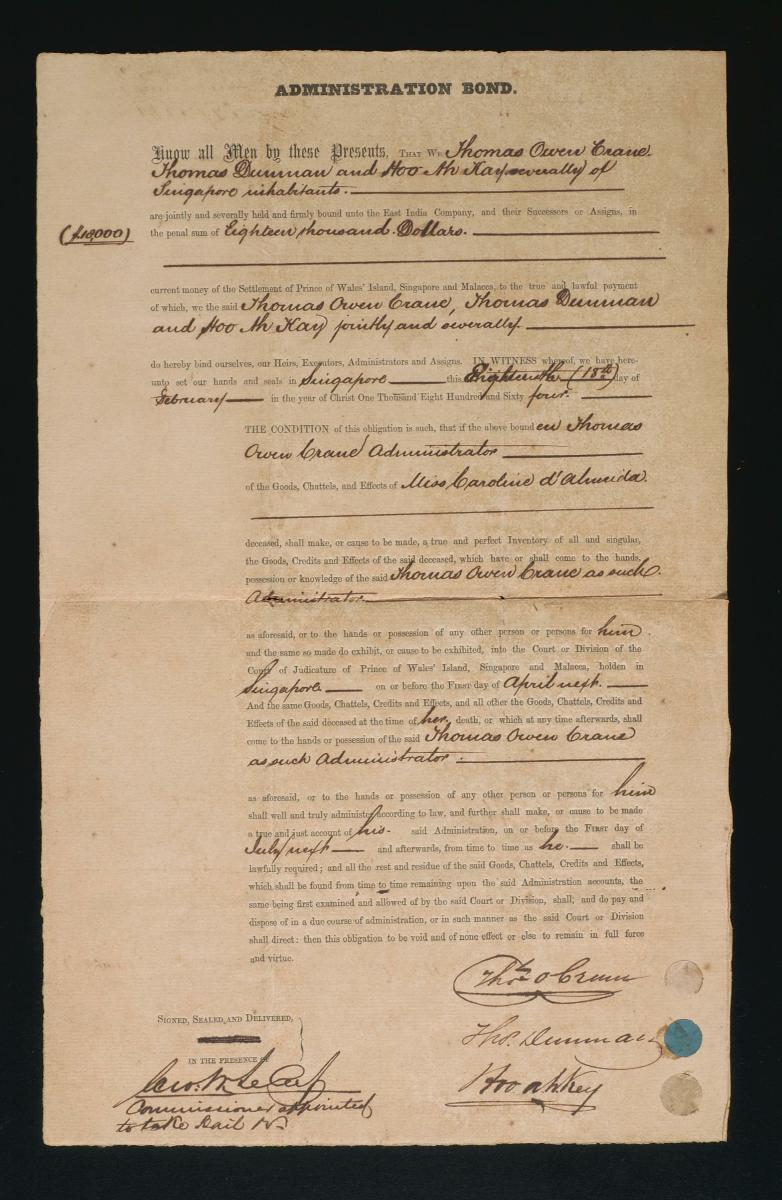 ADMINISTRATION BOND.
Know all Men by these Presents, THAT WE Thomas Owen Crane.
Thomas Dunman and Hoo Ah Kay severally of
Singapore inhabitants.
are jointly and severally held and firmly bound unto the East India Company, and their Successors or Assigns, in
($18000) the penal sum of Eighteen thousand. Dollars.
current money of the Settlement of Prince of Wales' Island, Singapore and Malacca, to the true and lawful payment
of which, we the said Thomas Owen Crane, Thomas Dunman
and Hoo Ah Kay jointly and severally.
do hereby bind ourselves, our Heirs, Executors, Administrators and Assigns. IN WITNESS whereof, we have here-
unto set our hands and seals in Singapore this Eighteenth (18th) day of
February in the year of Christ One Thousand Eight Hundred and Sixty four.
THE CONDITION of this obligation is such, that if the above bounden Thomas
Owen Crane Administrator
of the Goods, Chattels, and Effects of Miss Caroline d'Almeida.
deceased, shall make, or cause to be made, a true and perfect Inventory of all and singular,
the Goods, Credits and Effects of the said deceased, which have or shall come to the hands,
possession or knowledge of the said Thomas Owen Crane as such
Administrator
as aforesaid, or to the hands or possession of any other person or persons for him
and the same so made do exhibit, or cause to be exhibited, into the Court or Division of the
Court of Judicature of Prince of Wales' Island, Singapore and Malacca, holden in
Singapore on or before the First day of April next.
And the same Goods, Chattels, Credits and Effects, and all other the Goods, Chattels, Credits and
Effects of the said deceased at the time of her death, or which at any time afterwards, shall
come to the hands or possession of the said Thomas Owen Crane
as such Administrator.
as aforesaid, or to the hands or possession of any other person or persons for him
shall well and truly administer according to law, and further shall make, or cause to be made
a true and just account of his. said Administration, on or before the First day of
July next and afterwards, from time to time as he. shall be
lawfully required; and all the rest and residue of the said Goods, Chattels, Credits and Effects,
which shall be found from time to time remaining upon the said Administration accounts, the
same being first examined and allowed of by the said Court or Division, shall, and do pay and
dispose of in a due course of administration, or in such manner as the said Court or Division
shall direct: then this obligation to be void and of none effect or else to remain in full force
and virtue.
Thos. O Crane
SIGNED, SEALED, AND DELIVERED,
Thos. Dunman
IN THE PRESENCE OF
Hoo ah Key
Commissioner appointed
to take Bail